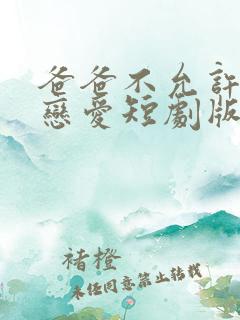 爸爸不允許
戀愛短劇版
褚橙
未经同意禁止转载